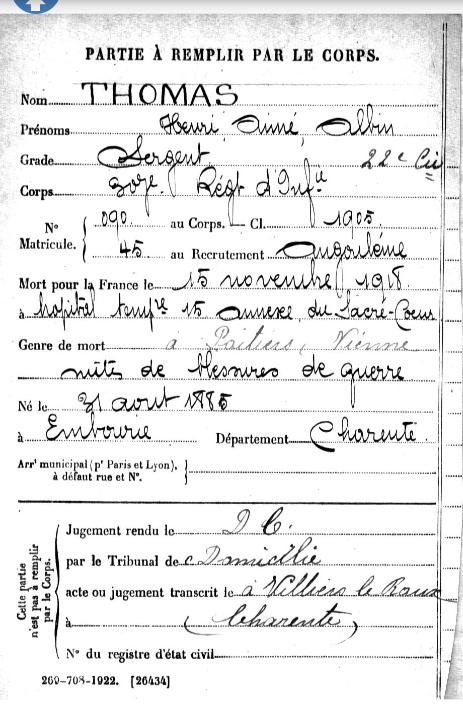 PARTIE À REMPLIR PAR LE CORPS.
Nom THOMAS
Prénoms Henri Aimé, Albin
Grade Sergent 22e Cie
Corps Régt d'Infie
N° Matricule. { 090 au Corps. — Cl. 1905
45 au Recrutement Angoulême
Mort pour la France le 15 novembre 1918
à hôpital tempre 15 annexe du Sacré-Coeur
Genre de mort à Poitiers, Vienne
suites de blessures de guerre
Né le 31 aout 1885
à Embourie Département Charente
Arrt municipal (pr Paris et Lyon), à défaut rue et N°.
Cette partie n'est pas à remplir par le Corps.
Jugement rendu le D C.
par le Tribunal de Domicilié
acte ou jugement transcrit le à Villiers le Roux
à (Charente)
N° du registre d'état civil
269-708-1922. [26434]